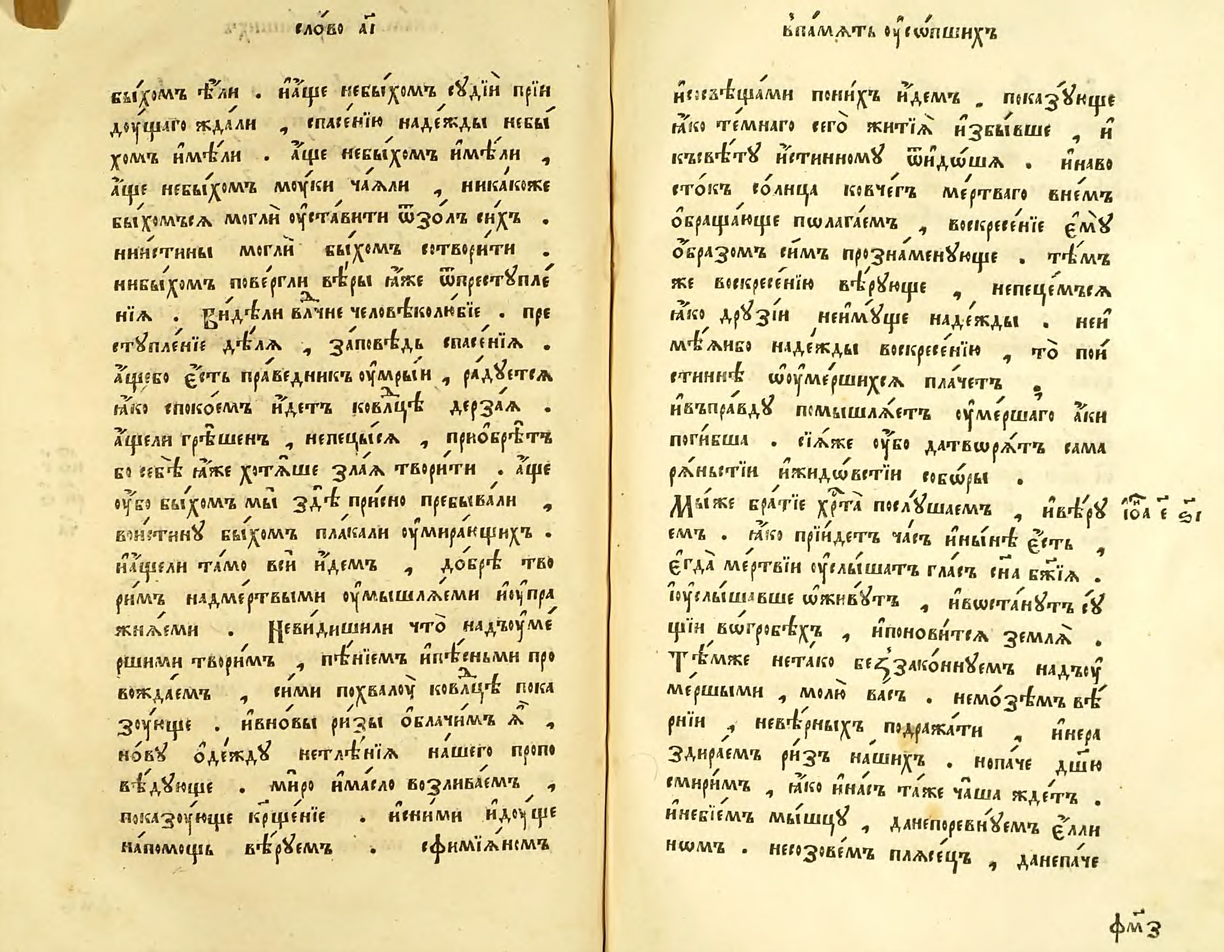 сло́во а҃і
бы́хомъ ѣ҆́ли . и҆а҆́ще небы́хомъ сꙋдїѝ прїи
доу́щаго ждали , спасе́нїю наде́жды небы́
хомъ и҆мѣ́ли . а҆́ще небы́хомъ и҆мѣ́ли ,
а҆́ще небы́хомъ моу́ки ча́ѧли , ника́коже
бы́хомъсѧ моглѝ оу҆ста́вити ѿзо́лъ си́хъ .
нии҆́стины моглѝ бы́хомъ сотвори́ти .
нибы́хомъ пове́ргли вѣ́ры ꙗ҆́же ѿпрестꙋпле́
нїѧ . Ви́дѣли влⷣчне человѣколю́бїе . пре
стꙋпле́нїе дѣ́лѧ , за́повѣдь спасе́нїѧ .
а҆́щебо є҆́сть пра́ведникъ оу҆мры́и , ра́дꙋетсѧ
ꙗ҆́ко споко́емъ и҆́детъ ковлⷣцѣ дерза́ѧ .
а҆́щели грѣ́шенъ , непецы́сѧ , прїѡбрѣ́тъ
бо себѣ̀ ꙗ҆́же хотѧ́ше зла́ѧ твори́ти . а҆́ще
оу҆́бо бы́хомъ мы̀ здѣ̀ при́сно пребыва́ли ,
вои́стинꙋ бы́хомъ пла́кали оу҆мира́ющихъ .
и҆а҆́щели та́мо всѝ и҆́демъ , до́брѣ тво
ри́мъ надме́ртвыми оу҆мышлѧ́еми и҆оу҆пра
жнѧ́еми . Неви́дишили что̀ надъоу҆ме́
ршими твори́мъ , пѣ́нїемъ и҆пѣ́сньми про
вожда́емъ , си́ми похвалоу̀ ковлⷣцѣ пока
зоу́юще . и҆вно́вы ри́зы ѻ҆блачи́мъ ѧ҆̀ ,
но́вꙋ ѻ҆де́ждꙋ нетлѣ́нїѧ на́шего пропо
вѣ́дꙋюще . ми́ро и҆ма́сло возлива́емъ ,
показоу́юще крⷭ҇ще́нїе . и҆сни́ми и҆доу́ще
напо́мощь вѣ́рꙋемъ . сѳимїѧ́номъ
в̾па́мѧть оу҆со́пшихъ
и҆сосвѣща́ми пони́хъ и҆́демъ . показꙋ́юще
ꙗ҆́ко те́мнаго сего̀ житїѧ̀ и҆збы́вше , и҆
късвѣ́тꙋ и҆́стинномꙋ ѿидо́шѧ . и҆наво
сто́къ со́лнца ковче́гъ ме́ртваго вне́мъ
ѻ҆браща́юще пѡлага́емъ , воскресе́нїе є҆мꙋ̀
ѻ҆́бразомъ си́мъ прозна́менꙋюще . тѣ́мъ
же воскресе́нїю вѣ́рꙋюще , непеце́мъсѧ
ꙗ҆́ко дрꙋзі́и неи҆мꙋ́ще наде́жды . неи҆
мѣ́ѧибо наде́жды воскресе́нїю , то̀ пои҆́
стиннѣ ѡ҆оу҆ме́ршихсѧ пла́четъ ,
и҆въпра́вдꙋ помышлѧ́етъ оу҆ме́ршаго а҆́ки
поги́бша . сїѧ́же оу҆́бо датворѧ́тъ сама
рѧ́ньстїи и҆жидо́встїи собо́ры .
Мы́же бра́тїе хрⷭ҇та̀ послꙋ́шаемъ , и҆вѣ́рꙋ
і҆ѡ҃а є҃ ѕ҃і
емъ . ꙗ҆́ко прїи́детъ ча́съ и҆ны́нѣ є҆́сть ,
є҆гда̀ ме́ртвїи оу҆слы́шатъ гла́съ сн҃а бж҃їѧ .
і҆оу҆слы́шавше ѡ҆живꙋ́тъ , и҆воста́нꙋтъ сꙋ́
щїи вогробѣ́хъ , и҆понови́тсѧ землѧ̀ .
Тѣ́мже нета́ко беззако́ннꙋемъ надъоу҆
ме́ршыми , молю̀ ва́съ . немо́зѣмъ вѣ́
рнїи , невѣ́рныхъ подража́ти , и҆нера
здира́емъ ри́зъ на́шихъ . нопа́че дш҃ю
смири́мъ , ꙗ҆́ко и҆на́съ та́же ча́ша жде́тъ .
и҆небїе́мъ мы́шцꙋ , данепоревнꙋ́емъ є҆́лли
номъ . несозове́мъ плѧсе́цъ , данепа́че
фм҃з